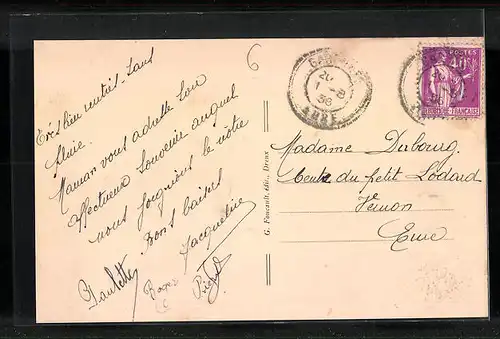 6
Très bien arrivés. Sans
pluie.
Maman vous adresse son
affectueux Souvenir auquel
nous joignons le notre
Bons baisers
Jacqueline
Paulette
Roger
G. Foucault, édit., Dreux
20
1 - 8
36
EURE
POSTES
40c
REPUBLIQUE FRANÇAISE
Madame Dubourg
du petit Lodard
Vernon
Eure